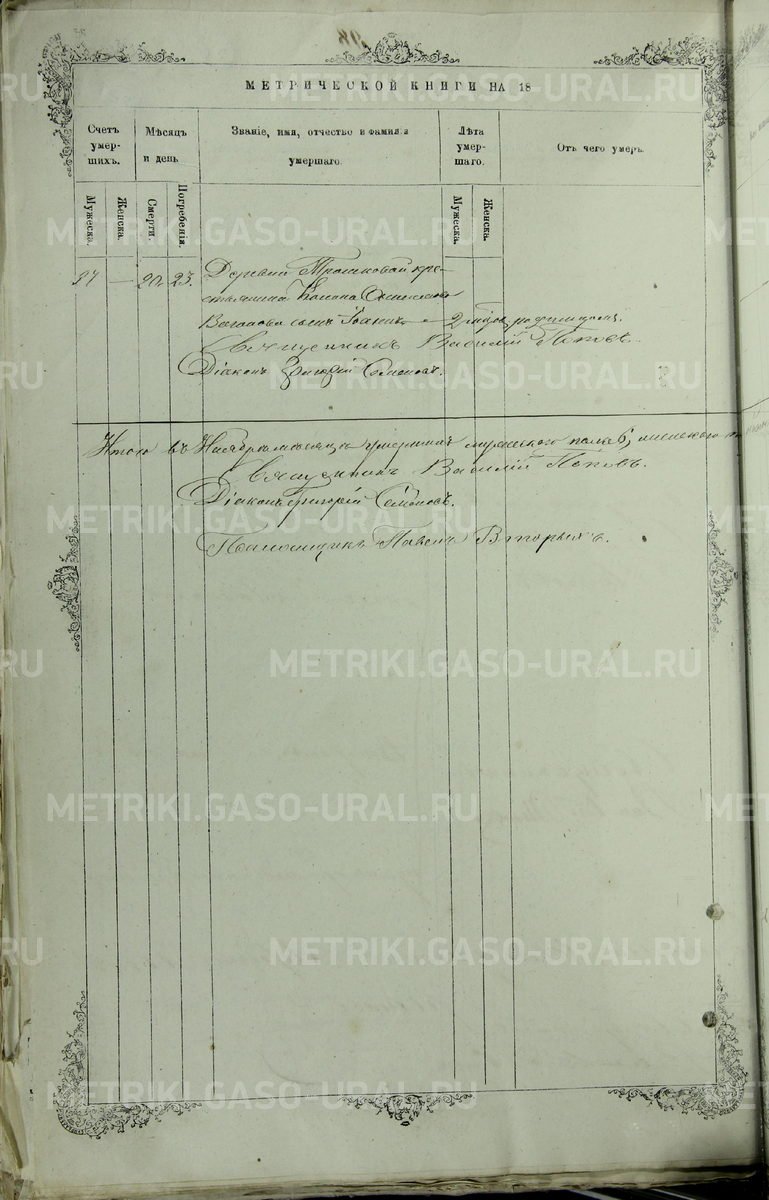 98
МЕТРИЧЕСКОЙ КНИГИ НА 18
Счетъ умер-шихъ.
Мѣсяцъ и день
Званіе, имя, отчество и фамилія умершаго.
Лѣта умер-шаго.
Отъ чего умеръ.
Мужеска.
Женска.
Смерти.
Погребенія.
Мужеска.
Женска.
37 — 20. 23. Деревни Трошковой кре-
стьянина Конона
Ваганова сынъ 2
Священникъ Василій Поповъ.
Діаконъ Григорій Семеновъ.
Итого въ Ноябрѣ мѣсяцѣ умершихъ мужескаго пола 6, женскаго
Священникъ Василій Поповъ.
Діаконъ Григорій Семеновъ.
Пономарь Павелъ Вторыхъ.
METRIKI.GASO-URAL.RU